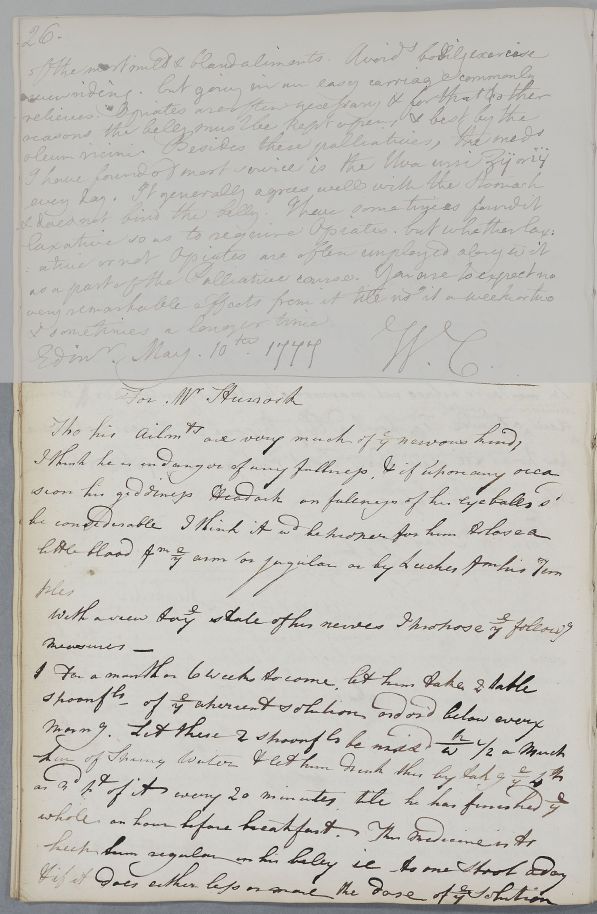 26.
of the most mild & bland aliments. Avoid's bodily exercise
even riding. but going in an easy carriage commonly
relieves. Opiates are often necessary & for that & other
reasons the belly must be kept open, & best by the
oleum ricini. Besides these palliatives, the meds
I have found of most service is the Uva ursi
every day. It generally agrees well with the Stomach
& does not bind the belly. I have sometimes found it
laxative so as to require Opiates. but whether lax:
:ative or not Opiates are often employed along wt it
as a part of the Palliative course. You are to expect no
very remarkable effects from it till us'd it a week or two
& sometimes a longer time
Edinr. May. 10th. 1777 W. C.
For Mr Sturrock
Tho his ailmts are very much of ye nervous kind,
I think he is in danger of any fullness, & if upon any occa
sion his giddiness Headach or fulness of his eyeballs sd
be considerable I think it wd be proper for him to lose a
little blood fm ye arm or jugular or by Leeches fm his Tem
ples
With a view to ye state of his nerves I propose ye followg
measures —
1 For a month or 6 weeks to come, let him take 2 table
spoonfls of ye aperient solution ordd below every
morng. Let these 2 spoonfls be mixd wth 1/2 a Mutch
kin of Spring Water & let him drink this by takg ye
as 3d pt of it every 20 minutes, till he has finished ye
whole an hour before breakfast. This medicine is to
keep him regular in his belly ie to one stool a day
& if it does either less or more the dose of ye solution